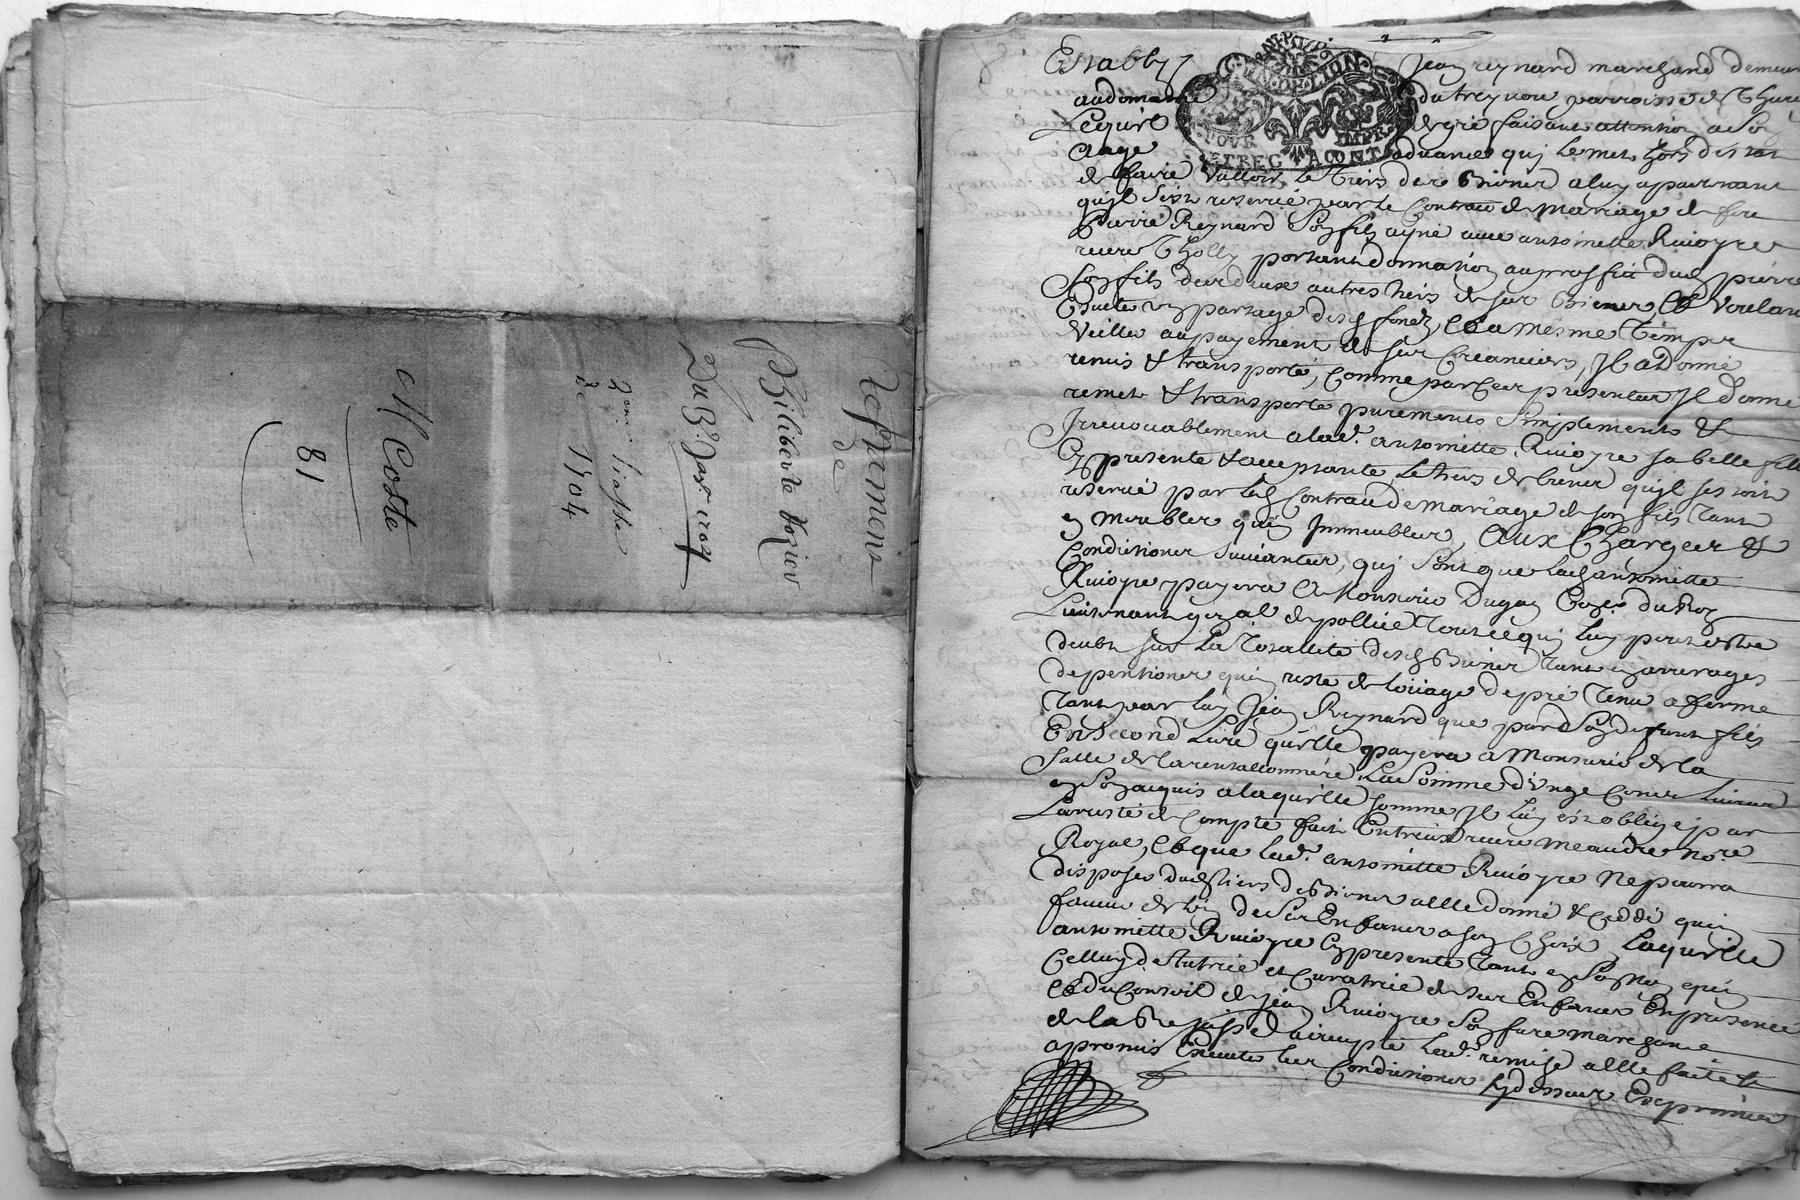 Testament
de
Philiberte Rozier
Du 3e. Janr. 1704
2eme liasse
de 1704
M Coste
81
Estably Jean reynard marchand demeur
GN. DE LION
POUR
audomaine du treynou parroisse de Thure
Lequel de gré faisant attention a son
aage advancé quy le met hors destat
de faire valloir le tiers de ses Biens a luy appartenant
quil sest reservé par le Contrat de Mariage de feu
pierre Reynard son fils ayné avec antoinette Rivoyre
receu Tholly portant donnation au proffit dud pierre
son fils des deux autres tiers de ses Biens, Et voulant
Eviter un partage desd fonds, Et a mesme Temps
veiller au payement de ses Creanciers, Il a Donné
remis & transporté, comme par ces presentes Il Donne
remet & transporte purement simplement &
Irrevocablement a lad. antoinette Rivoyre sa belle fille
Cy presente & acceptante Le tiers de biens quil sestoit
reservé par led Contrat de mariage de son fils Tant
en meubles quen Immeubles, Aux Charges &
Conditions suivantes, quy sont que lad antoinette
Rivoyre payera A Monsieur Dugas Coner. du Roy
Lieutenant gnal de pollice Tout ce quy luy peut estre
deubt sur La Totallité desd Biens Tant en arrerages
de pentions quen reste de louage de pré Tenu a ferme
Tant par luy Jean Reynard que par Son deffunt fils
En second Lieu quelle payera a Monsieur de la
Salle de Larentallonniere La Somme donze Cents livres
en son acquis a laquelle somme Il luy est obligé par
Larresté de Compte fait Entreux receu meaudre nore
Royal, Et que lad. antoinette Rivoyre Ne pourra
disposer dud tiers de Biens a elle donné & ceddé quen
faveur de lun de Ses Enfans a son Choix, Laquelle
antoinette Rivoyre Cy presente Tant en son nom quen
Celluy de tutrice et Curatrice de ses Enfans En presence
Et du Conseil de jean Rivoyre son frere marchand
de la accepté lad. remise a elle faite &
a promis Executer les Conditions Cy dessus Exprimées